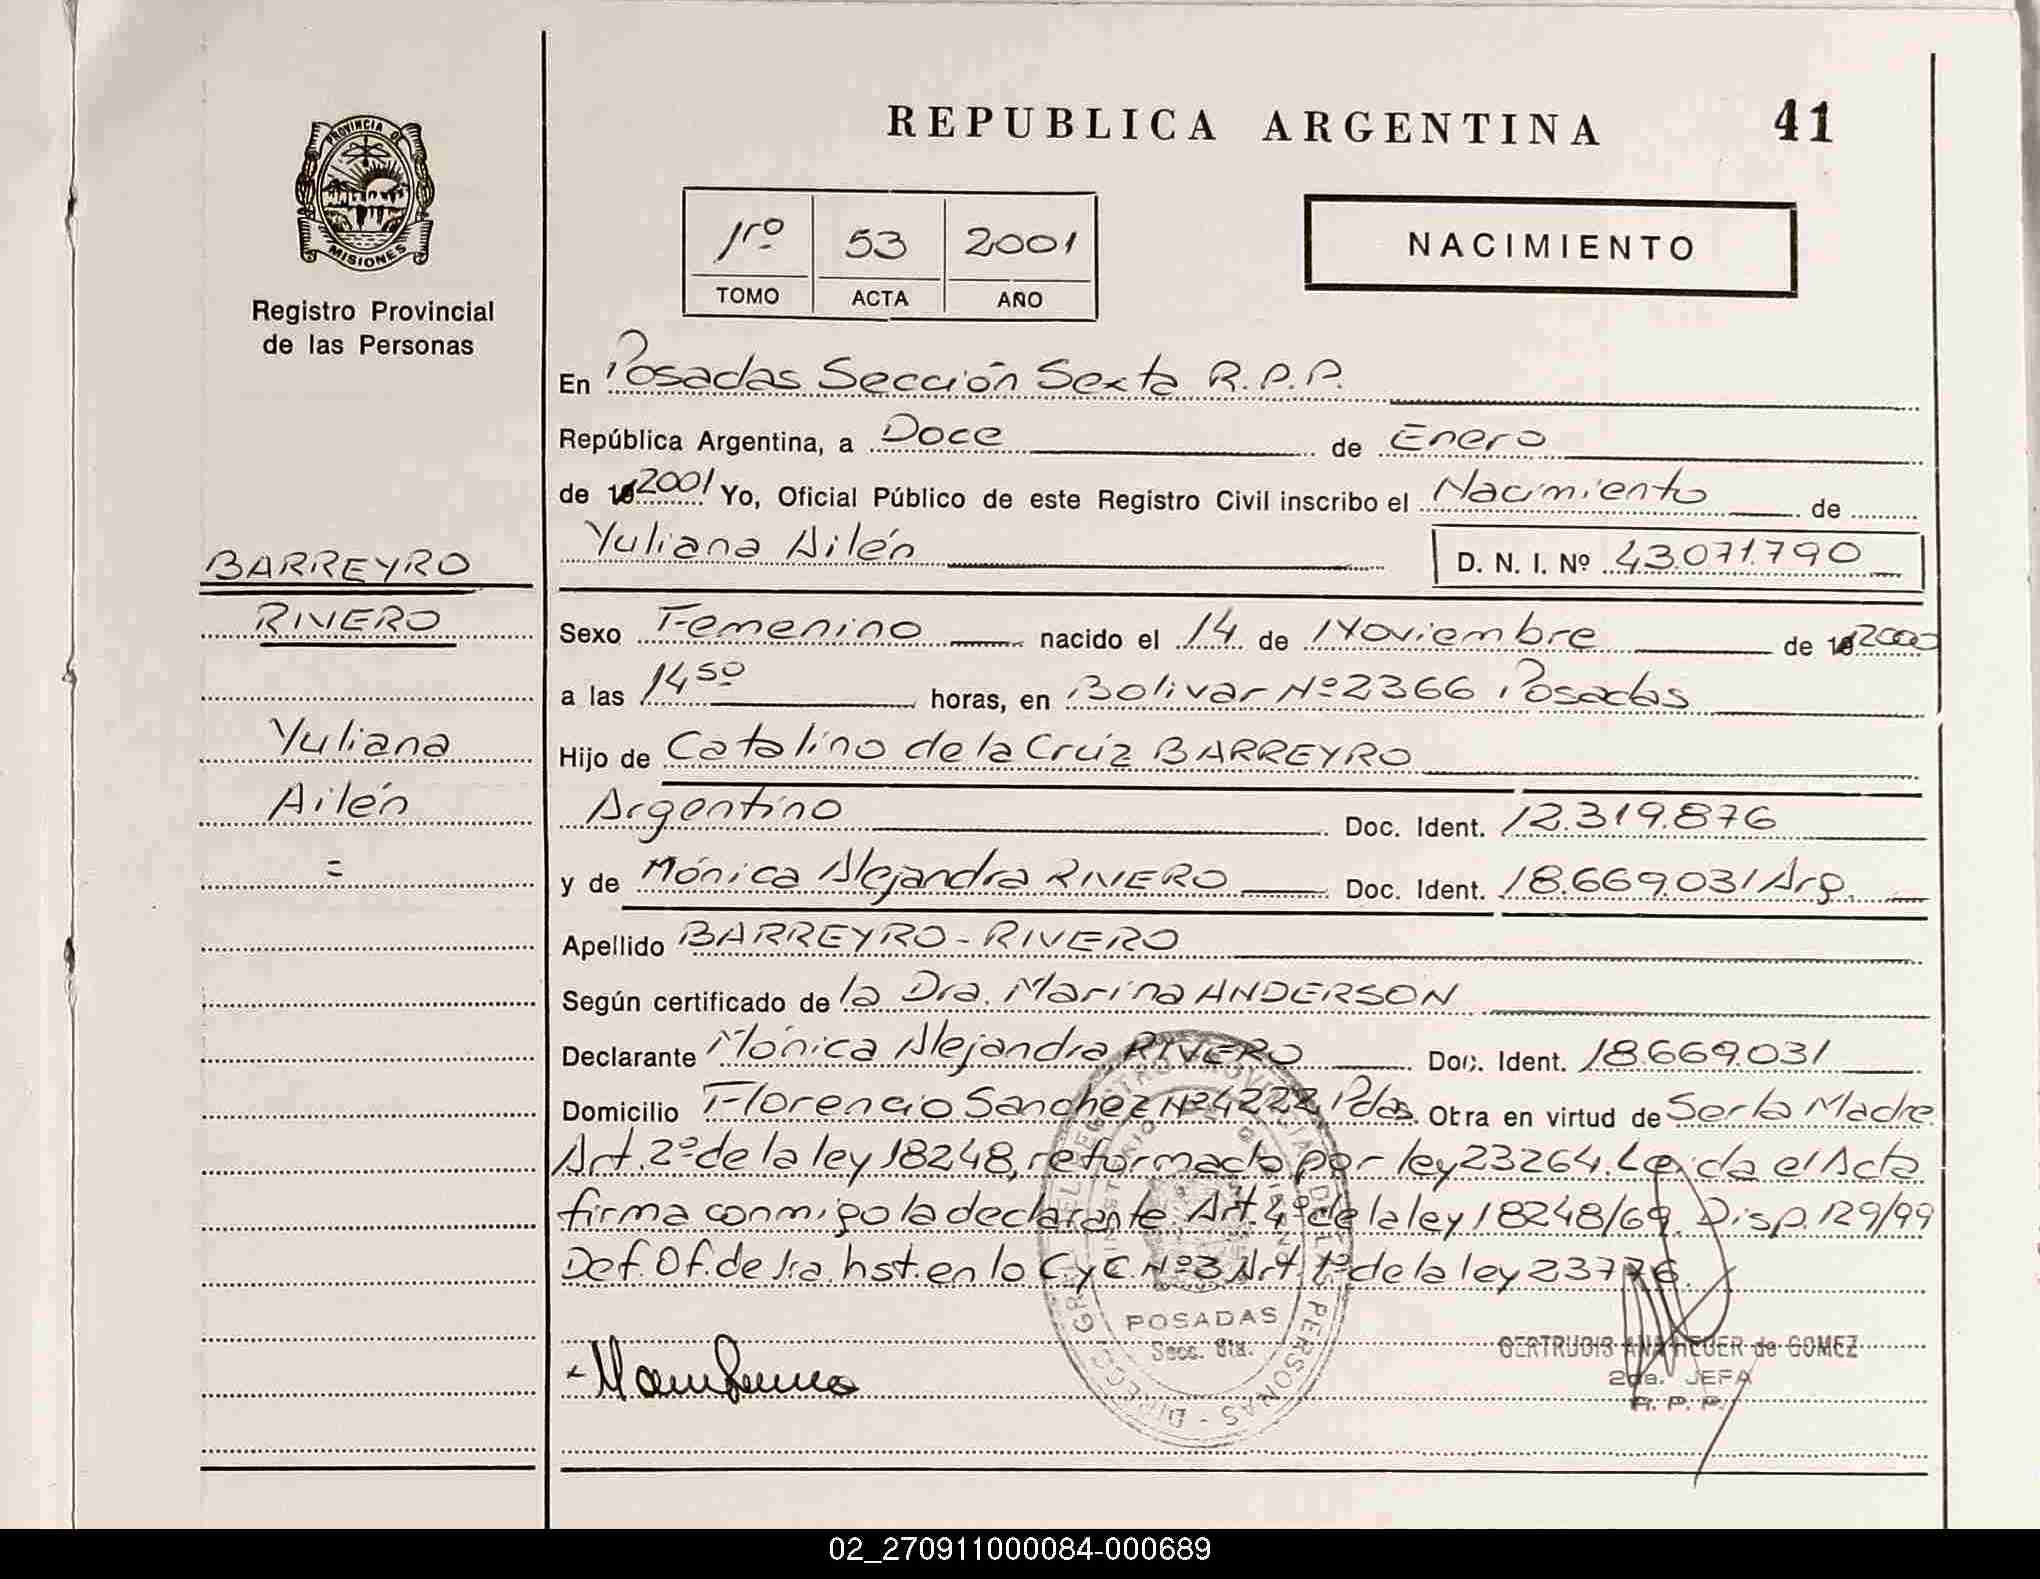 PROVINCIA DE
MISIONES
Registro Provincial
de las Personas
BARREYRO
RIVERO
Yuliana
Ailén
=
REPUBLICA ARGENTINA 41
1ro 53 2001
TOMO ACTA AÑO
NACIMIENTO
En Posadas Sección Sexta R.P.P.
República Argentina, a Doce de Enero
de 2001 Yo, Oficial Público de este Registro Civil inscribo el Nacimiento de
Yuliana Ailén D. N. I. Nº 43.071.790
Sexo Femenino nacido el 14 de Noviembre de 2000
a las 14 50 horas, en Bolivar Nº 2366 Posadas
Hijo de Catalino de la Crúz BARREYRO
Argentino Doc. Ident. 12.319.876
y de Mónica Alejandra RIVERO Doc. Ident. 18.669.031 Arg.
Apellido BARREYRO - RIVERO
Según certificado de la Dra. Marina ANDERSON
Declarante Mónica Alejandra RIVERO Doc. Ident. 18.669.031
Domicilio Florencio Sanchez Nº 4222 Pdas. Obra en virtud de Ser la Madre
Art. 2º de la ley 18248, reformada por ley 23264. Leída el Acta
firma conmigo la declarante. Art. 4º de la ley 18248/69. Disp. 129/99
Def. Of. de 1ra. Inst. en lo C y C. Nº 3 Art. 1º de la ley 23776.
POSADAS
Secc. 6ta.
GERTRUDIS ANA HEUER de GOMEZ
2da. JEFA
R. P. P.
02_270911000084-000689